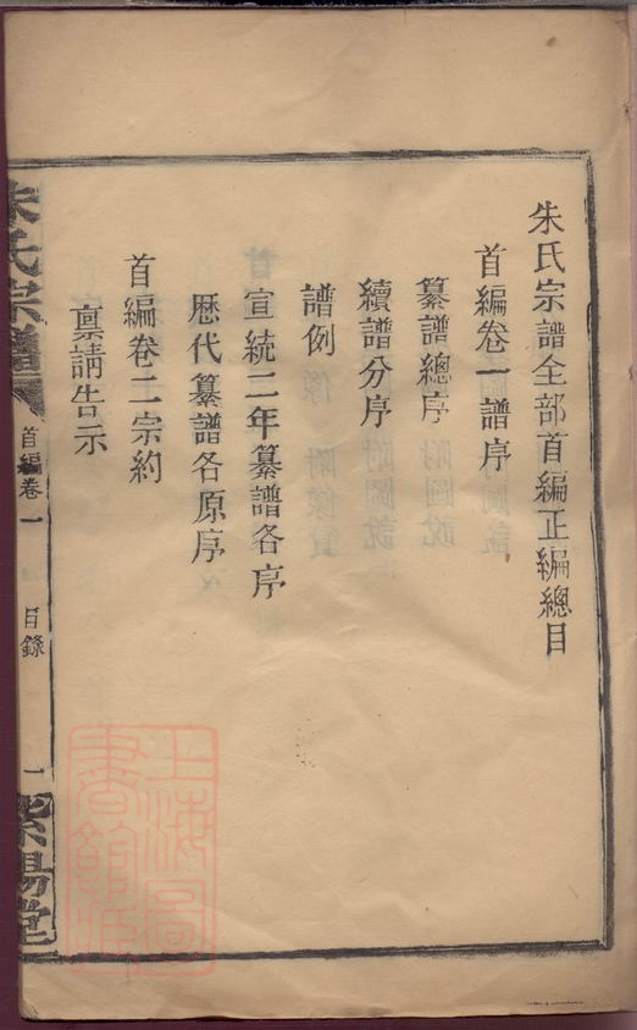 朱氏宗譜全部首編正編總目
首編卷一譜序
纂譜總序
續譜分序
譜例
宣統二年纂譜各序
歷代纂譜各原序
首編卷二宗約
稟請告示
朱氏宗譜
首編卷一
目錄
一
紫陽堂
上海圖書館藏